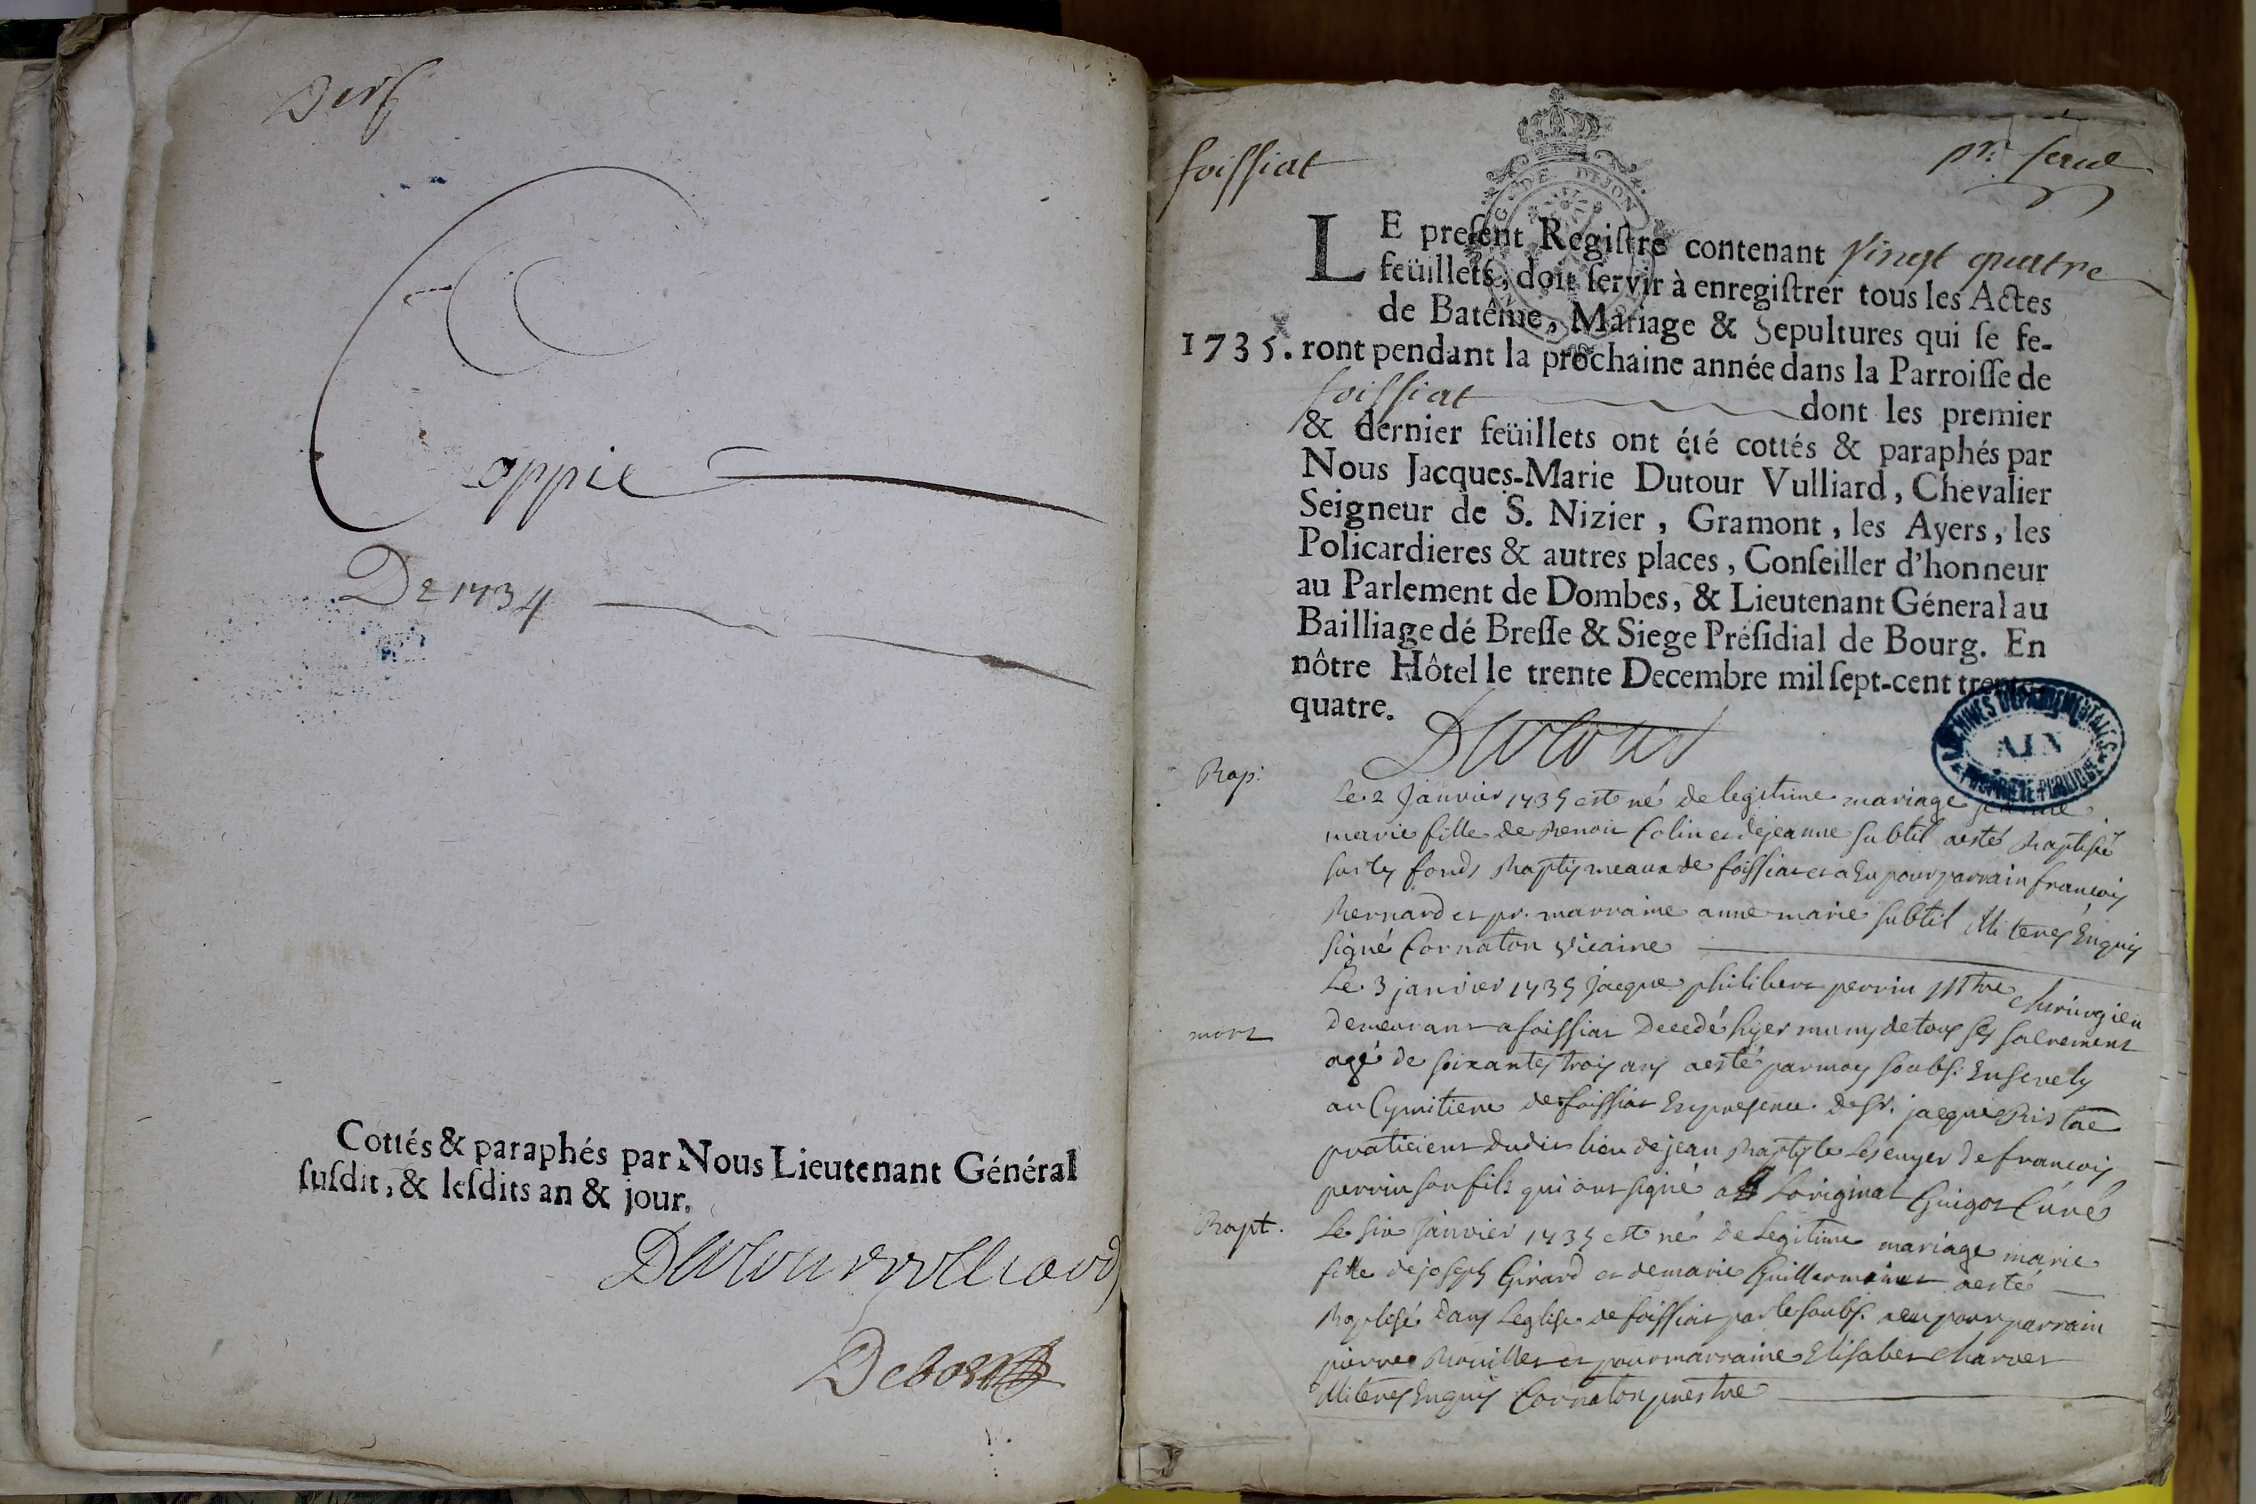 Coppie
De 1734
Cottés & paraphés par Nous Lieutenant Général
ſuſdit, & leſdits an & jour.
Dutour Vulliard
foissiat
G. DE DIJON
LE preſent Regiſtre contenant Vingt quatre
feüillets, doit ſervir à enregiſtrer tous les Actes
de Batême, Mariage & Sepultures qui ſe fe-
1735. ront pendant la prochaine année dans la Parroiſſe de
foissiat dont les premier
& dernier feüillets ont été cottés & paraphés par
Nous Jacques-Marie Dutour Vulliard, Chevalier
Seigneur de S. Nizier, Gramont, les Ayers, les
Policardieres & autres places, Conſeiller d'honneur
au Parlement de Dombes, & Lieutenant Géneral au
Bailliage dé Breſſe & Siege Préſidial de Bourg. En
nôtre Hôtel le trente Decembre mil ſept-cent trente
quatre.
Dutour
ARCHIVES DEPARTEMENTALES
AIN
PROPRIÉTÉ PUBLIQUE
Bap:
Le 2 Janvier 1735 est né de legitime mariage jeanne
marie fille de Benoit Colin et de jeanne subtil aesté Baptisé
sur les fonds Baptismeaux de foissiat et a Eu pour parrain françois
Bernard et pr. marraine anne marie subtil illiteres Enquis
signé Cornaton Vicaire
Le 3 janvier 1735 jacque philibert perrin Mtre chirurgien
mort
demeurant a foissiat decedé hyer muny de tous ses sacrement
agé de soixantes trois ans aesté par moy soubs. Ensevely
au Cymitiere de foissiat En presence de Sr. jacque
praticient dudit lieu de jean Baptiste Lescuyer de françois
perrin son fils qui ont signé a Loriginal Guigot Curé
Bapt.
Le six janvier 1735 est né de Legitime mariage marie
fille de joseph Girard et de marie Guillermin aesté
Baptisé dans Leglise de foissiat par le soubs. a eu pour parrain
pierre Brouillet et pour marraine Elisabet charvet
illiteres Enquis Cornaton prestre